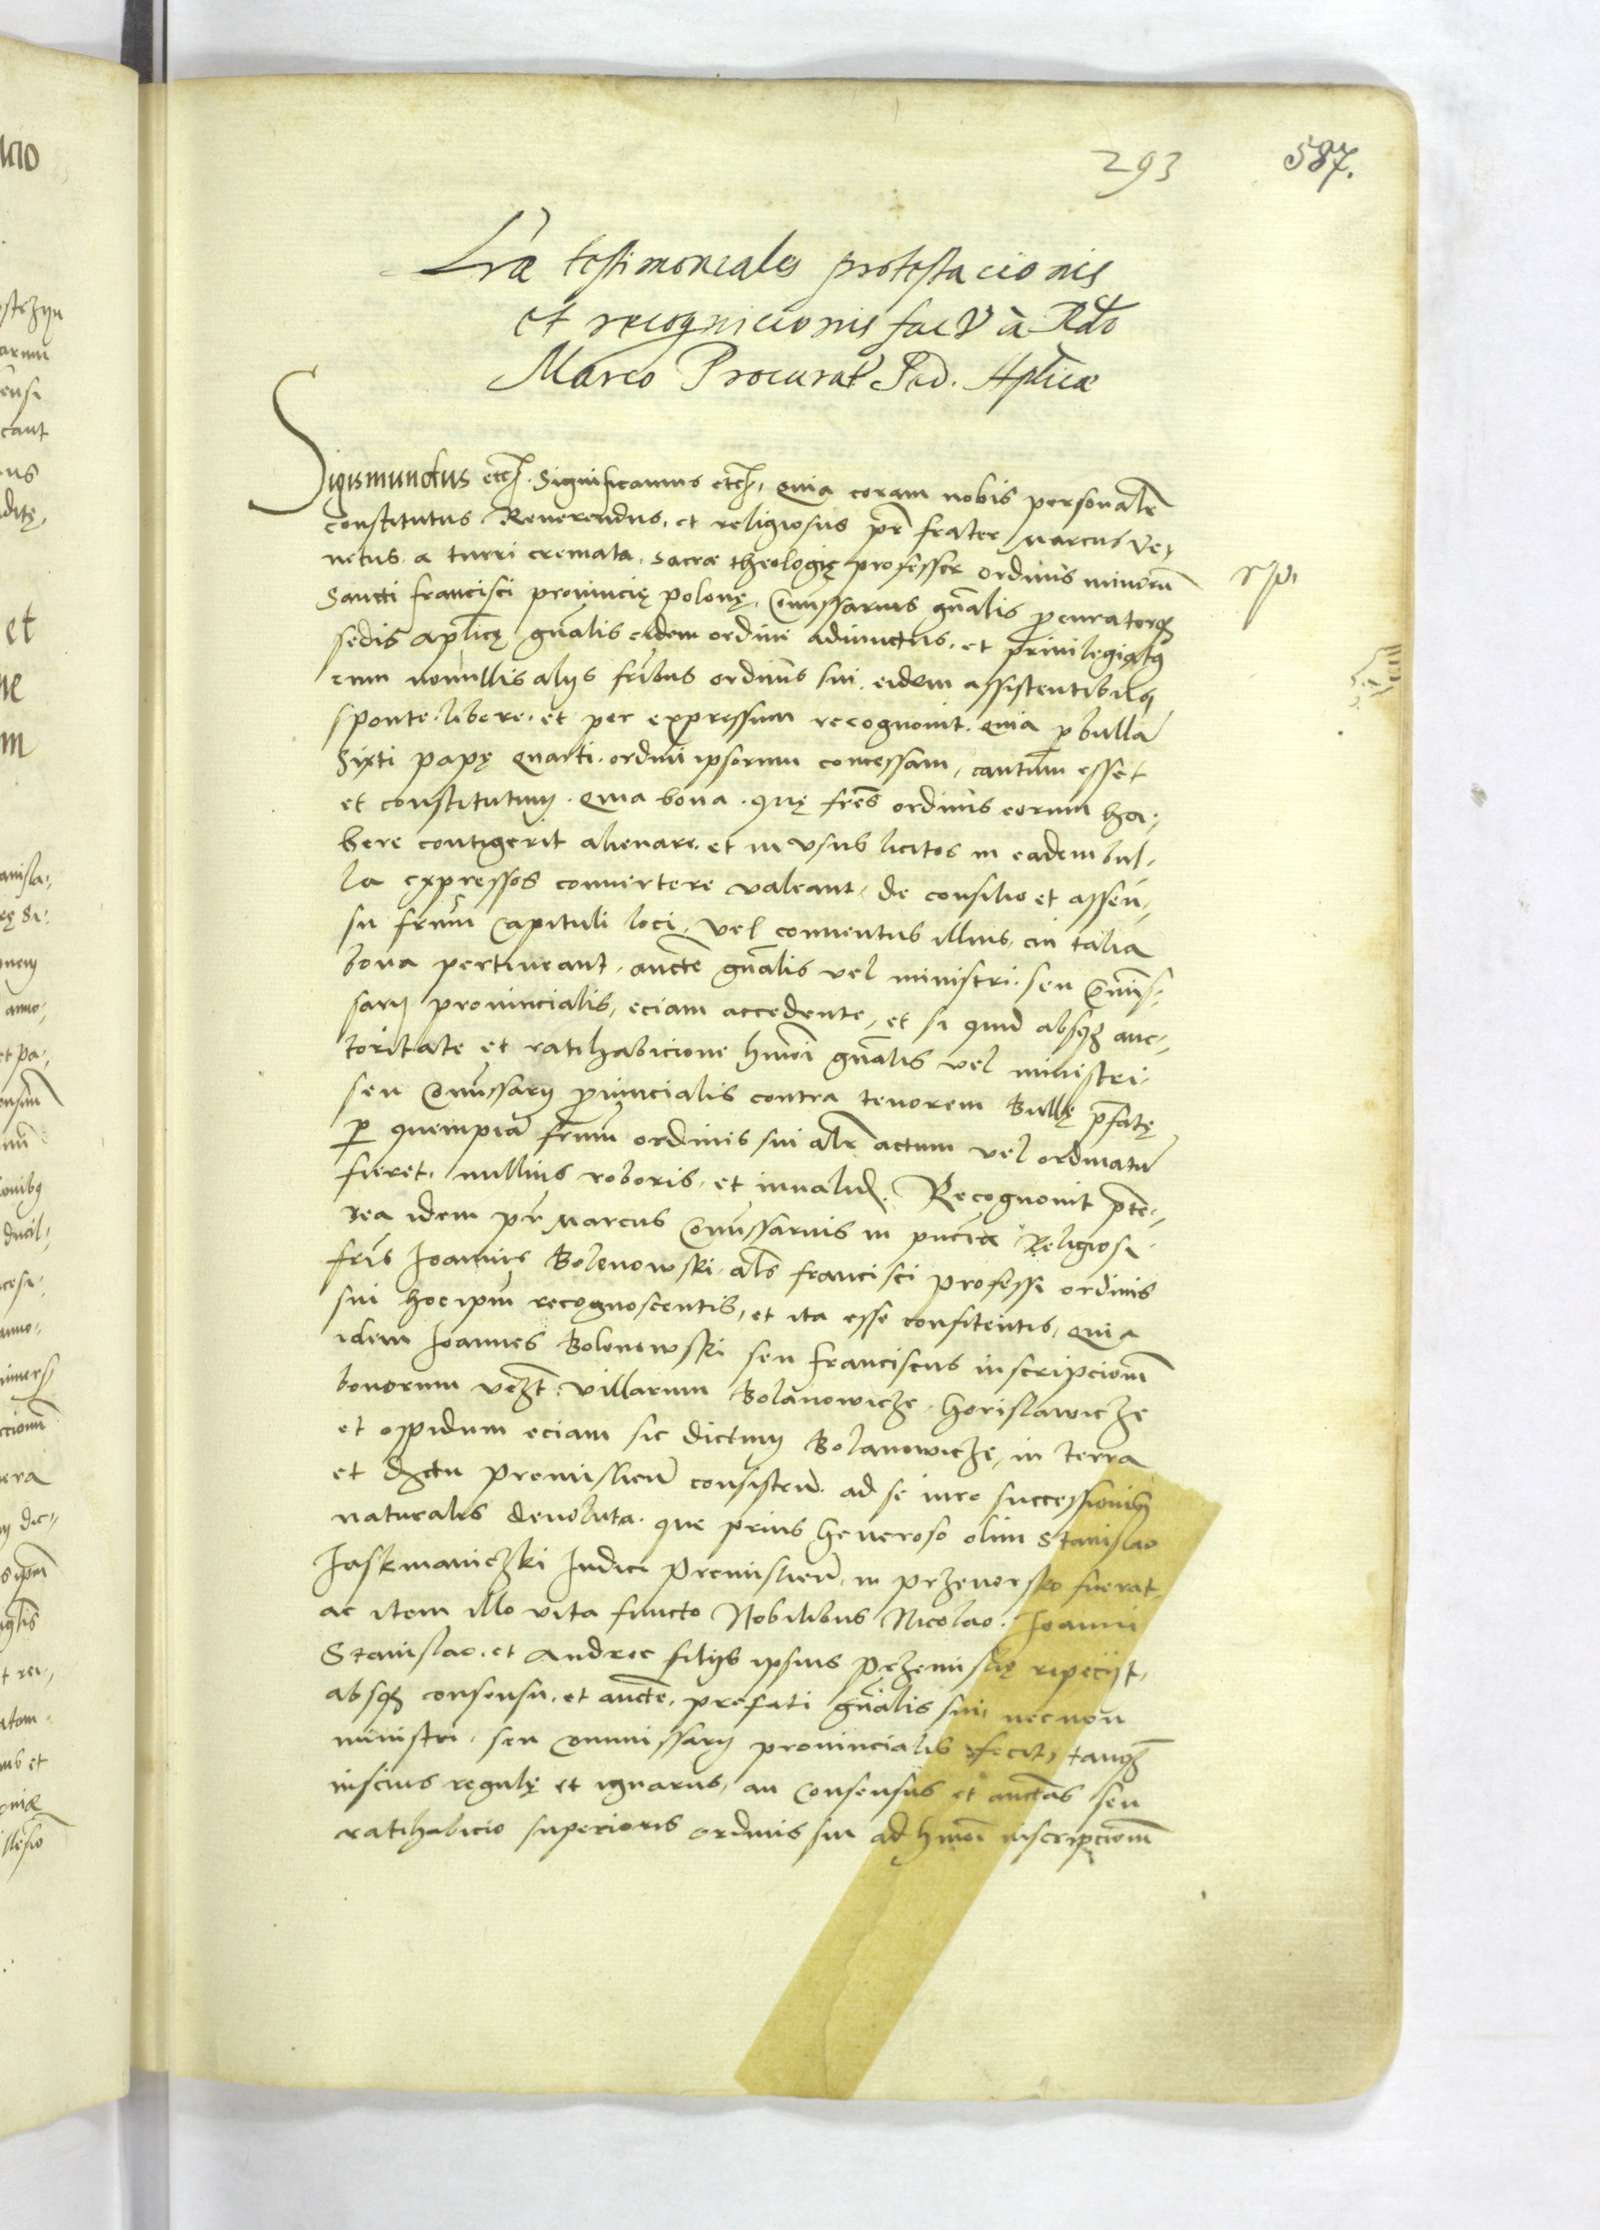 293 587.
Lrae testimoniales protestacionis
et recognicionis fact à Rdo
Marco Procurat Sed. Aplicae
Sigismundus etc. Significamus etc. quia coram nobis personalr
constitutus Reverendus, et religiosus pr frater Marcus Ve,
netus a turri cremata. sacrae theologię professor ordinis minorum
Sancti francisci provincię polonę, Commissarius gnalis procurator
sedis aplicę gnalis eidem ordini adiunctus, et privilegiatus
cum nonnullis alijs fribus ordinis sui eidem assistentibus
sponte. libere. et per expressum recognovit. quia p bulla
Sixti papę quarti. ordini ipsorum concessam, cautum esset
et constitutum. quia bona. quę fres ordinis eorum ha-
bere contigerit alienare. et in usus licitos in eadem bul-
la expressos convertere valeant, de consilio et assen-
su frum Capituli loci, vel conventus illius, cui talia
bona pertineant, aucte gnalis vel ministri. seu Comis-
sarij provincialis, eciam accedente, et si quid absque auc-
toritate et ratihabicione hmoi gnalis vel ministri.
seu Comissarij provincialis contra tenorem Bullę pfatę
p quempiam frum ordinis sui alr actum vel ordinatum
fieret. nullius roboris, et invalid. Recognovit pte-
rea idem pr Marcus Comissarius in pncia Religiosi
fris Joannis Bolenowski. als francisci professi ordinis
sui hoc ipum recognoscentis, et ita esse confitentis, quia
idem Joannes Bolonowski seu franciscus inscripcionem
bonorum vezt. villarum Bolanowicze, horislawicze
et oppidum eciam sic dictum Bolanowicze, in terra
et dictu Premislien consisten. ad se iure successionis
naturalis devoluta. que prius Generoso olim Stanislao
Jaskmaniczki Judici Premislien. in przeworsko fuerat.
ac item illo vita functo Nobilibus Nicolao. Joanni
Stanislao. et Andree filijs ipsius Przemislię repeciit,
absque consensu. et aucte. prefati gnalis sui, necnon
ministri, seu commissarij provincialis fecit, tanq
inscius regulę et ignarus, an consensus et auctas seu
ratihabicio superioris ordinis sui ad hmoi inscripcionem